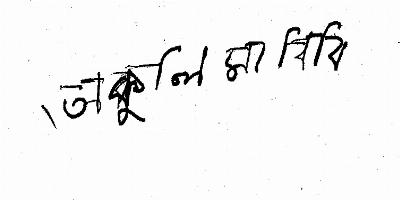 তাকলিমা বিবি